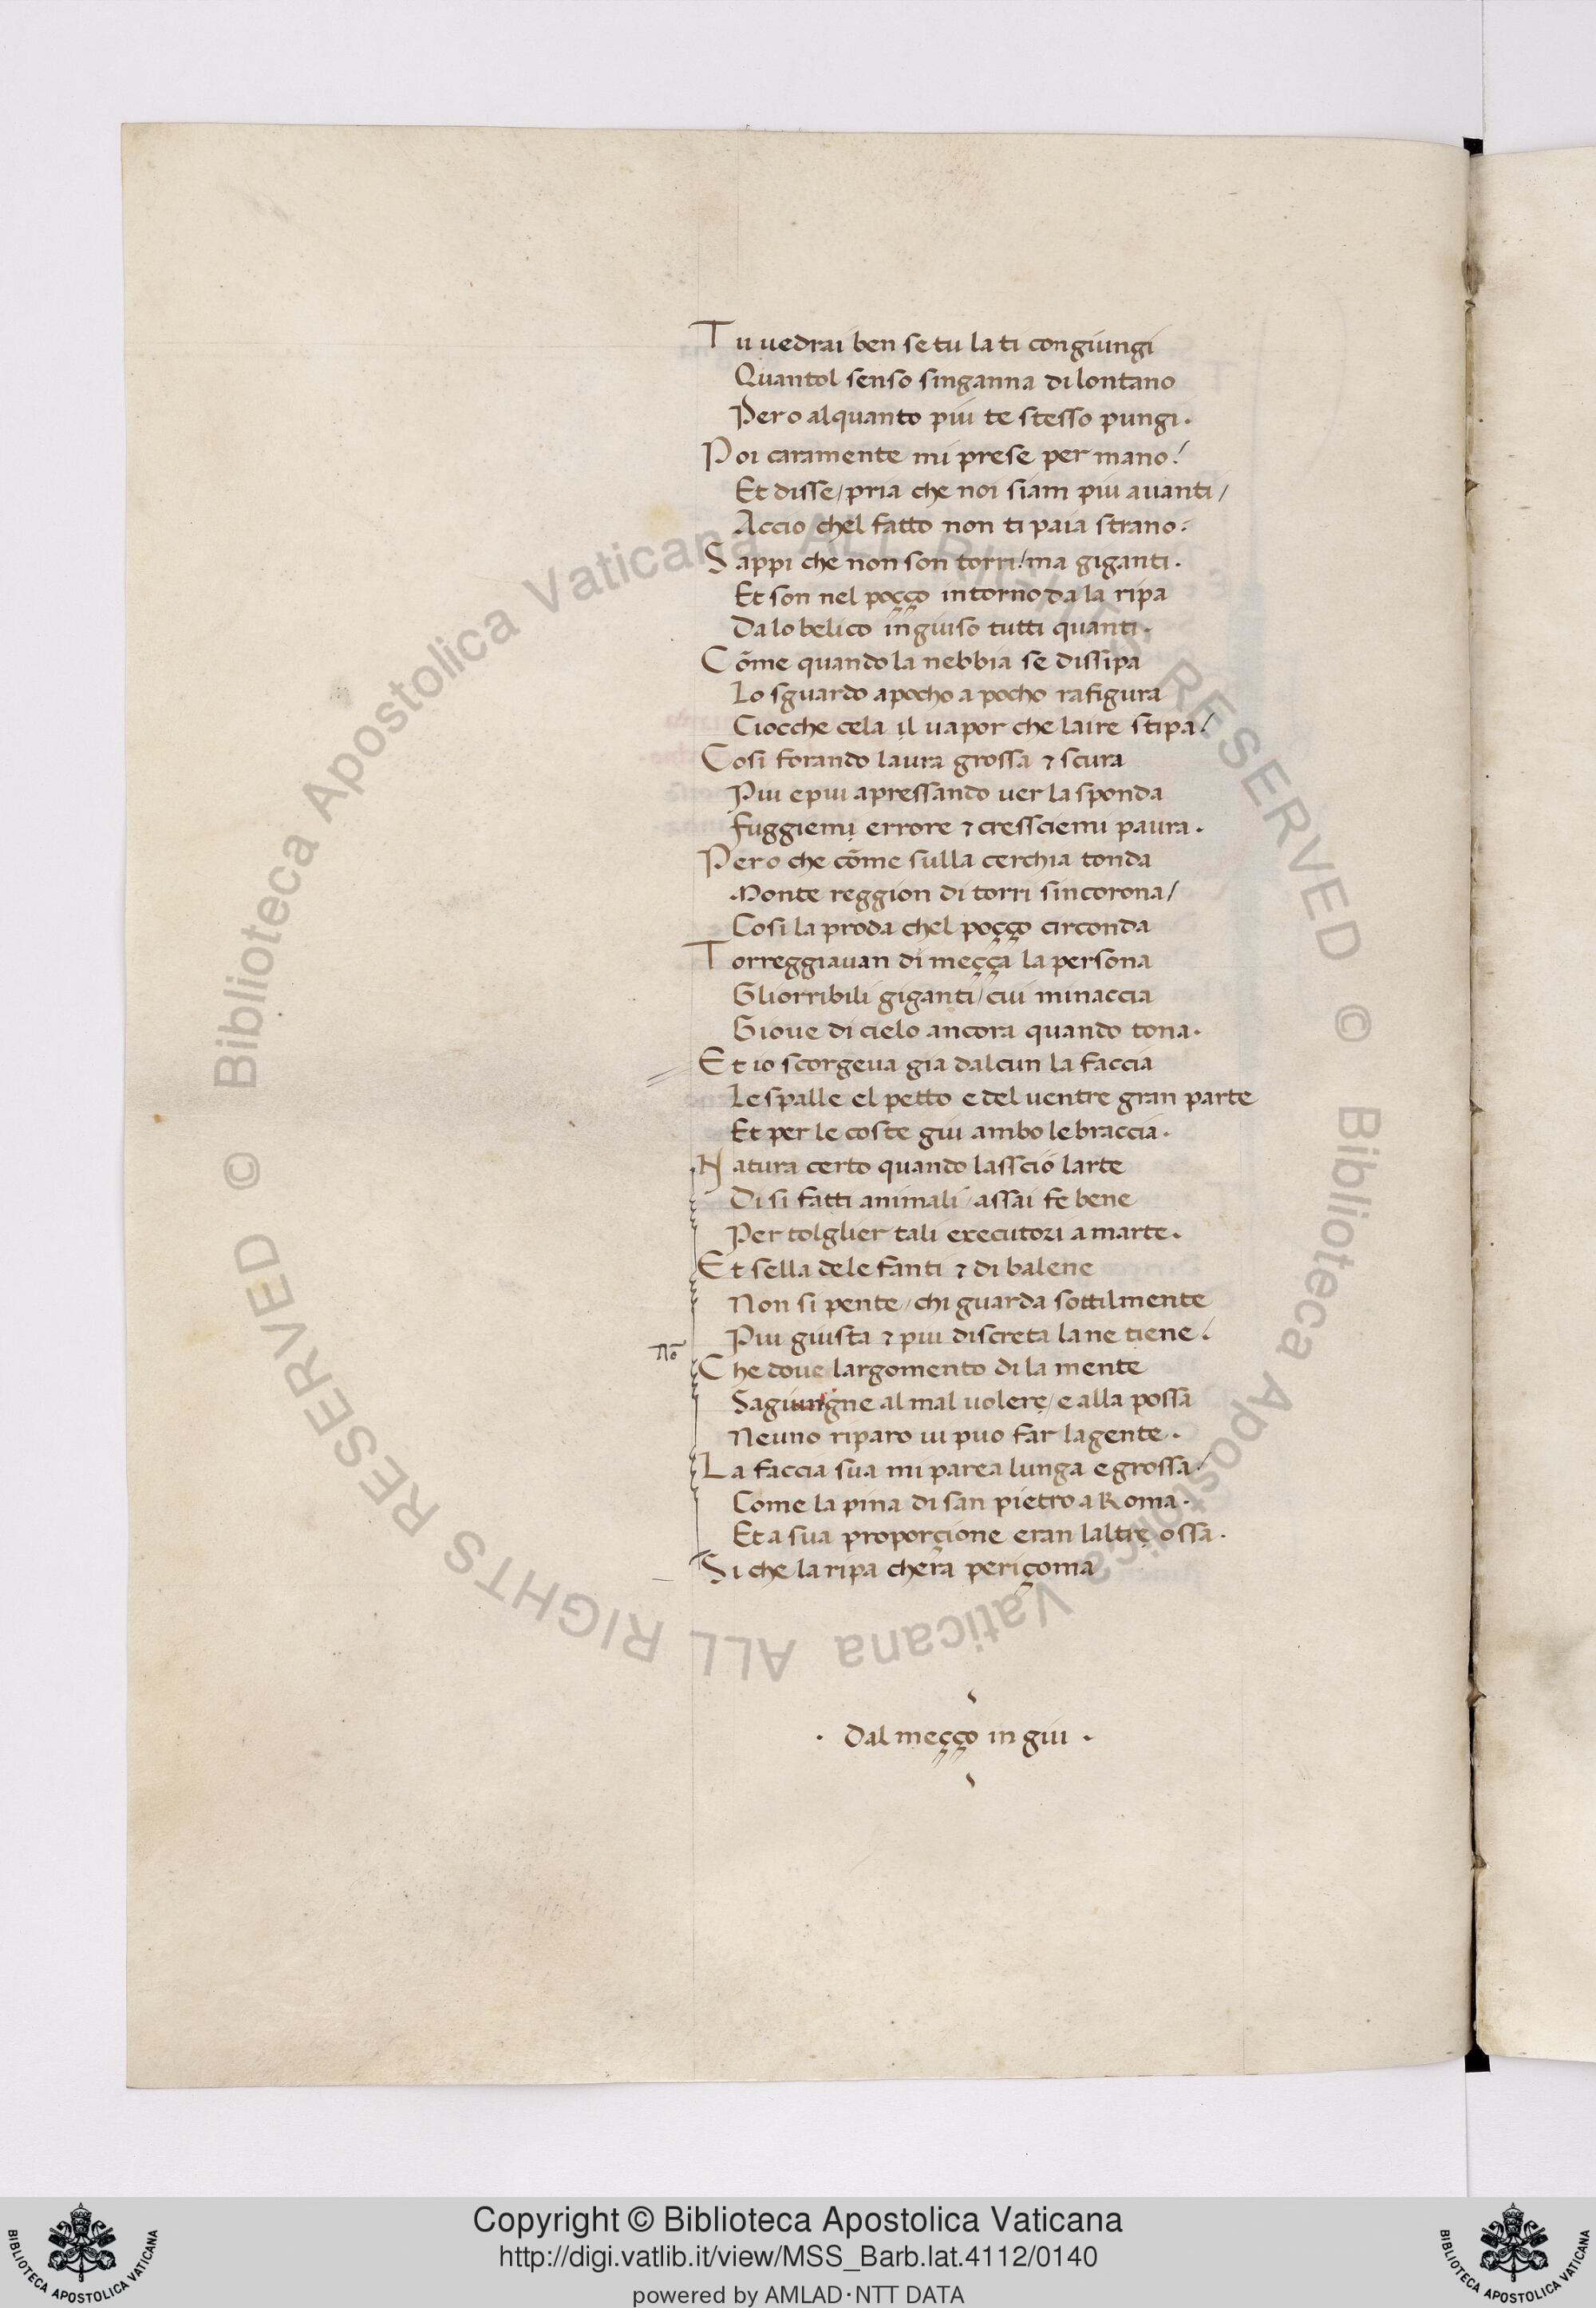 Tu uedrai ben se tu la ti congiungi
Quantol senso singanna di lontano
Pero alquanto piu te stesso pungi.
Poi caramente mi prese per mano/
Et disse/pria che noi siam piu auanti/
Accio chel fatto non ti paia strano.
Sappi che non son torri/ma giganti.
Et son nel poçço intorno da la ripa
Da lo belico ingiuso tutti quanti.
Cõme quando la nebbia se dissipa
Lo sguardo apocho a pocho rafigura
Ciocche cela il uapor che laire stipa/
Cosi forando laura grossa ⁊ scura
Piu epiu apressando uer la sponda
fuggiemi errore ⁊ cressciemi paura.
Pero che cõme sulla cerchia tonda
Monte reggion di torri sincorona/
Cosi la proda chel poçço circonda
Torreggiauan di meçça la persona
Gliorribili giganti/cui minaccia
Gioue di cielo ancora quando tona.
Et io scorgeua gia dalcun la faccia
Le spalle el petto e del uentre gran parte
Et per le coste giu ambo le braccia.
Natura certo quando lassciò larte
Di si fatti animali/assai fe bene
Per tolglier tali executori a marte.
Et sella delefanti ⁊ di balene
Non si pente/chi guarda sottilmente
Piu giusta ⁊ piu discreta la ne tiene/
Nõ
Che doue largomento di la mente
Sagiungne al mal uolere/e alla possa
Neuno riparo ui puo far lagente.
La faccia sua mi parea lunga e grossa/
Come la pina di san pietro a Roma.
Et a sua proporçione eran laltre ossa.
Si che la ripa chera periçoma
. Dal meçço in giu .
© Biblioteca Apostolica Vaticana ALL RIGHTS RESERVED © Biblioteca Apostolica Vaticana ALL RIGHTS RESERVED
Copyright © Biblioteca Apostolica Vaticana
http://digi.vatlib.it/view/MSS_Barb.lat.4112/0140
powered by AMLAD·NTT DATA
BIBLIOTECA APOSTOLICA VATICANA
BIBLIOTECA APOSTOLICA VATICANA